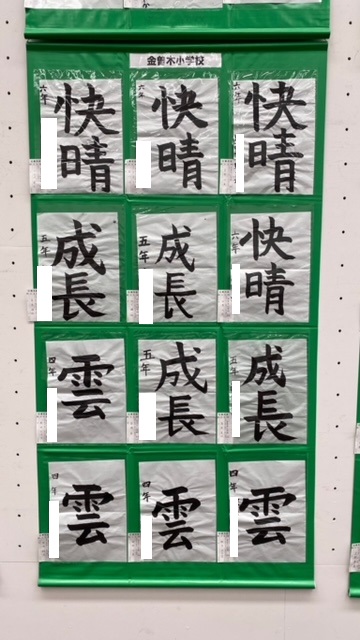 金曽木小学校
快晴
六年
快晴
六年
快晴
六年
快晴
六年
成長
五年
成長
五年
成長
五年
成長
五年
雲
四年
雲
四年
雲
四年
雲
四年